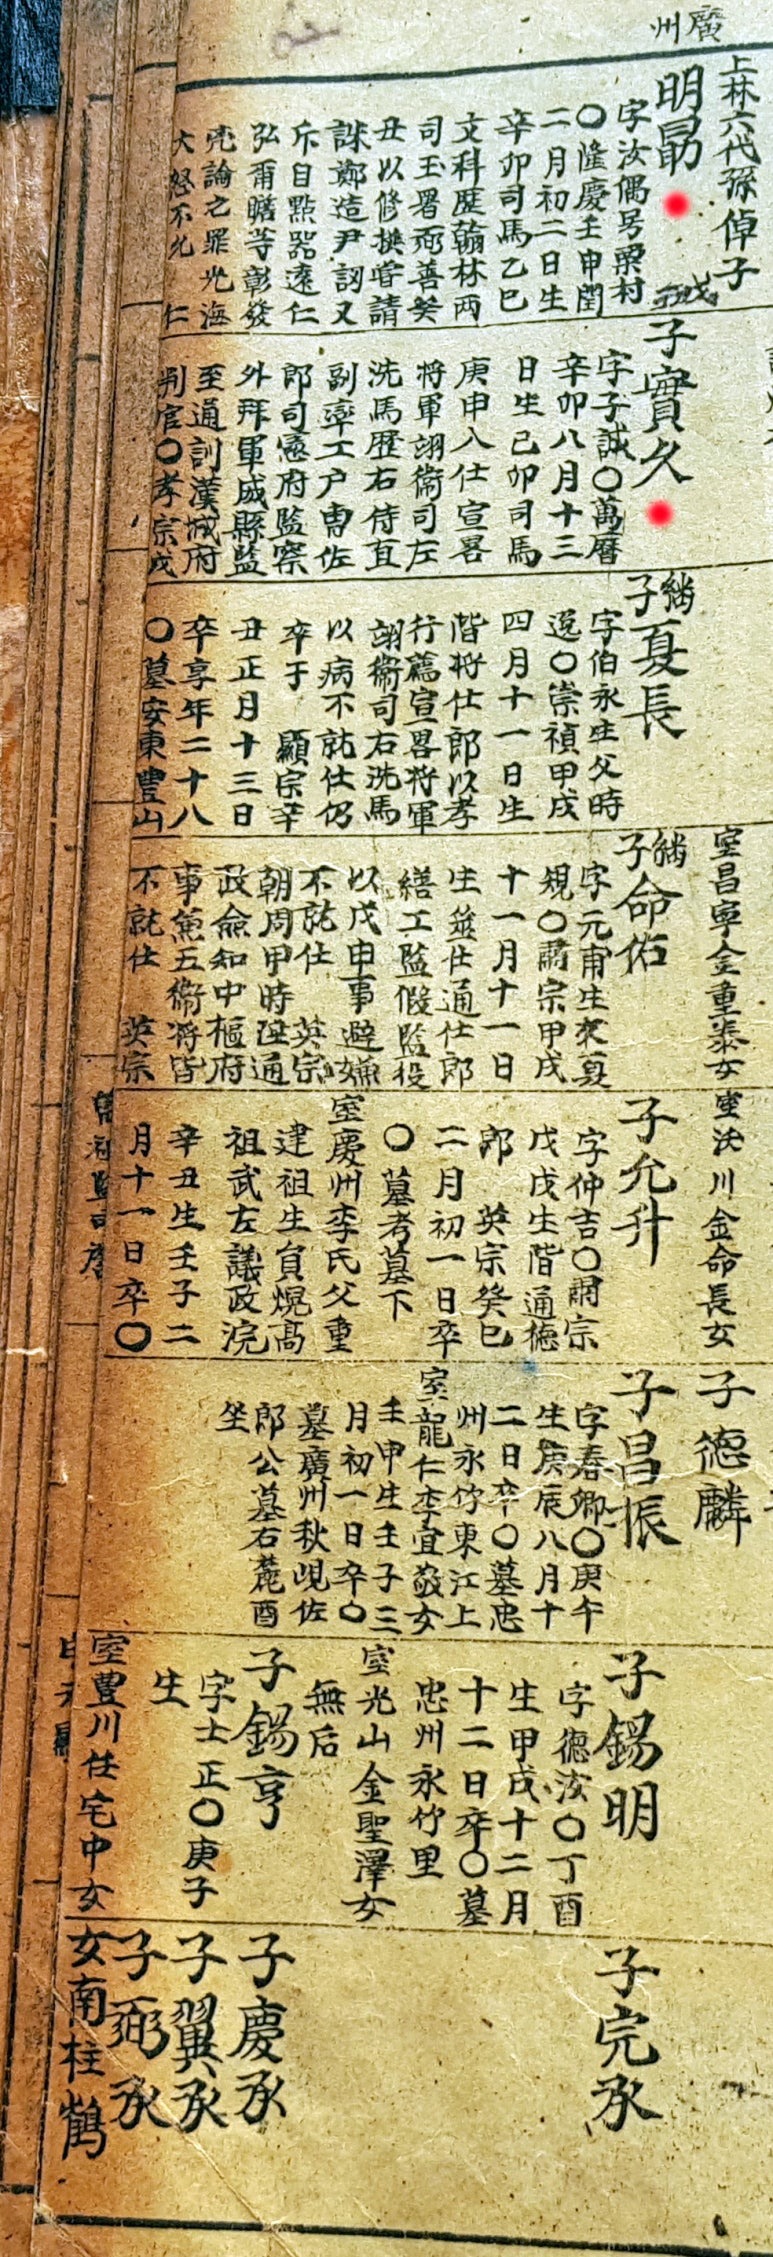 廣州
上林六代孫倬子
明勗
字汝偶号栗村
〇隆慶壬申閏
二月初二日生
辛卯司馬乙巳
文科歷翰林兩
司玉署弼善癸
丑以修撰嘗請
誅鄭造尹訒又
斥自點器遠仁
弘甭瞻等彰發
兇論之罪光海
大怒不允 仁
子實久
字子誠〇萬曆
辛卯八月十三
日生己卯司馬
庚申入仕宣畧
將軍翊衛司左
洗馬歷右侍直
副率工户曹佐
郎司憲府監察
外拜軍威縣監
至通訓漢城府
判官〇孝宗戊
繼子夏長
字伯永生父時
〇崇禎甲戌
四月十一日生
階將仕郎以孝
行薦宣畧將軍
翊衛司右洗馬
以病不就仕仍
卒于 顯宗辛
丑正月十三日
卒享年二十八
〇墓安東豊山
室昌寧金重泰女
繼子命佑
字元甫生父夏
規〇肅宗甲戌
十一月十一日
生筮仕通仕郎
繕工監假監役
以戊申事避嫌
不就仕 英宗
朝周甲時陞通
政僉知中樞府
事兼五衛將皆
不就仕 英宗
室沃川金命長女
子允升
字仲吉〇肅宗
戊戌生階通德
郎 英宗癸巳
二月初一日卒
〇墓考墓下
室慶州李氏父重
建祖生員熀高
祖武左議政浣
辛丑生壬子二
月十一日卒〇
子德麟
子昌振
字春卿〇庚午
生庚辰八月十
二日卒〇墓忠
州永竹東江上
室龍仁李宜敬女
壬申生壬子三
月初一日卒〇
墓廣州秋峴佐
郎公墓右麓酉
坐
子錫明
字德汝〇丁酉
生甲戌十二月
十二日卒〇墓
忠州永竹里
室光山金聖澤女
無后
子錫亨
字士正〇庚子
生
室豊川任宅中女
子完承
子慶承
子翼承
子弼承
女南柱鶴